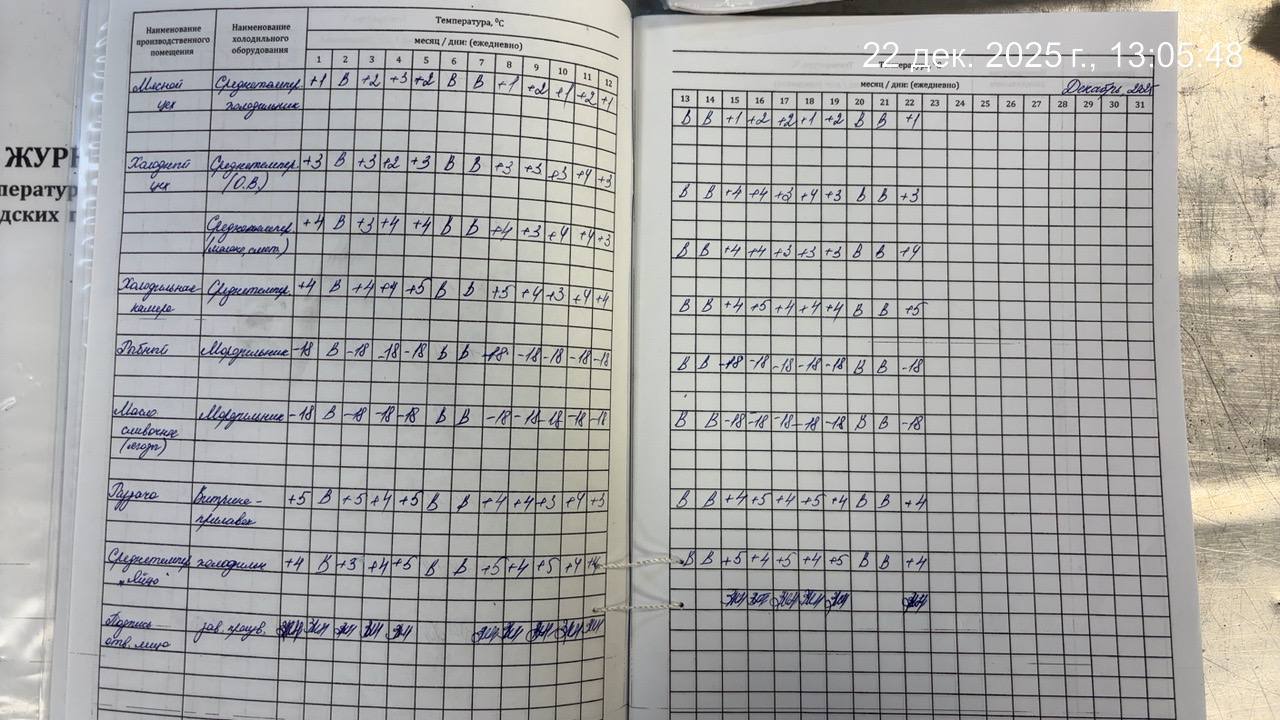 ЖУРН
ператур
дских п
Наименование производственного помещения
Наименование холодильного оборудования
Температура, ⁰С
месяц / дни: (ежедневно)
1 2 3 4 5 6 7 8 9 10 11 12
Мясной Среднетемпер. +1 В +2 +3 +2 В В +1 +2 +1 +2 +1
цех холодильник
Холодный Среднетемпер. +3 В +3 +2 +3 В В +3 +3 +3 +4 +3
цех (О.В.)
Среднетемпер. +4 В +3 +4 +4 В В +4 +3 +4 +4 +3
(молоко, смет.)
Холодильная Среднетемпер. +4 В +4 +4 +5 В В +5 +4 +3 +4 +4
камера
Рыбный Морозильник -18 В -18 -18 -18 В В -18 -18 -18 -18 -18
Масло Морозильник -18 В -18 -18 -18 В В -18 -18 -18 -18 -18
сливочное
(ягоды)
Раздача Витрина- +5 В +5 +4 +5 В В +4 +4 +3 +4 +3
прилавок
Среднетемпер холодильн +4 В +3 +4 +5 В В +5 +4 +5 +4 +4
"Яйцо"
Подпись зав. произв.
отв. лица
22 дек. 2025 г., 13:05:48
Температура
месяц / дни: (ежедневно)
Декабрь, 2025
13 14 15 16 17 18 19 20 21 22 23 24 25 26 27 28 29 30 31
В В +1 +2 +2 +1 +2 В В +1
В В +4 +4 +3 +4 +3 В В +3
В В +4 +4 +3 +3 +3 В В +4
В В +4 +5 +4 +4 +4 В В +5
В В -18 -18 -18 -18 -18 В В -18
В В -18 -18 -18 -18 -18 В В -18
В В +4 +5 +4 +5 +4 В В +4
В В +5 +4 +5 +4 +5 В В +4